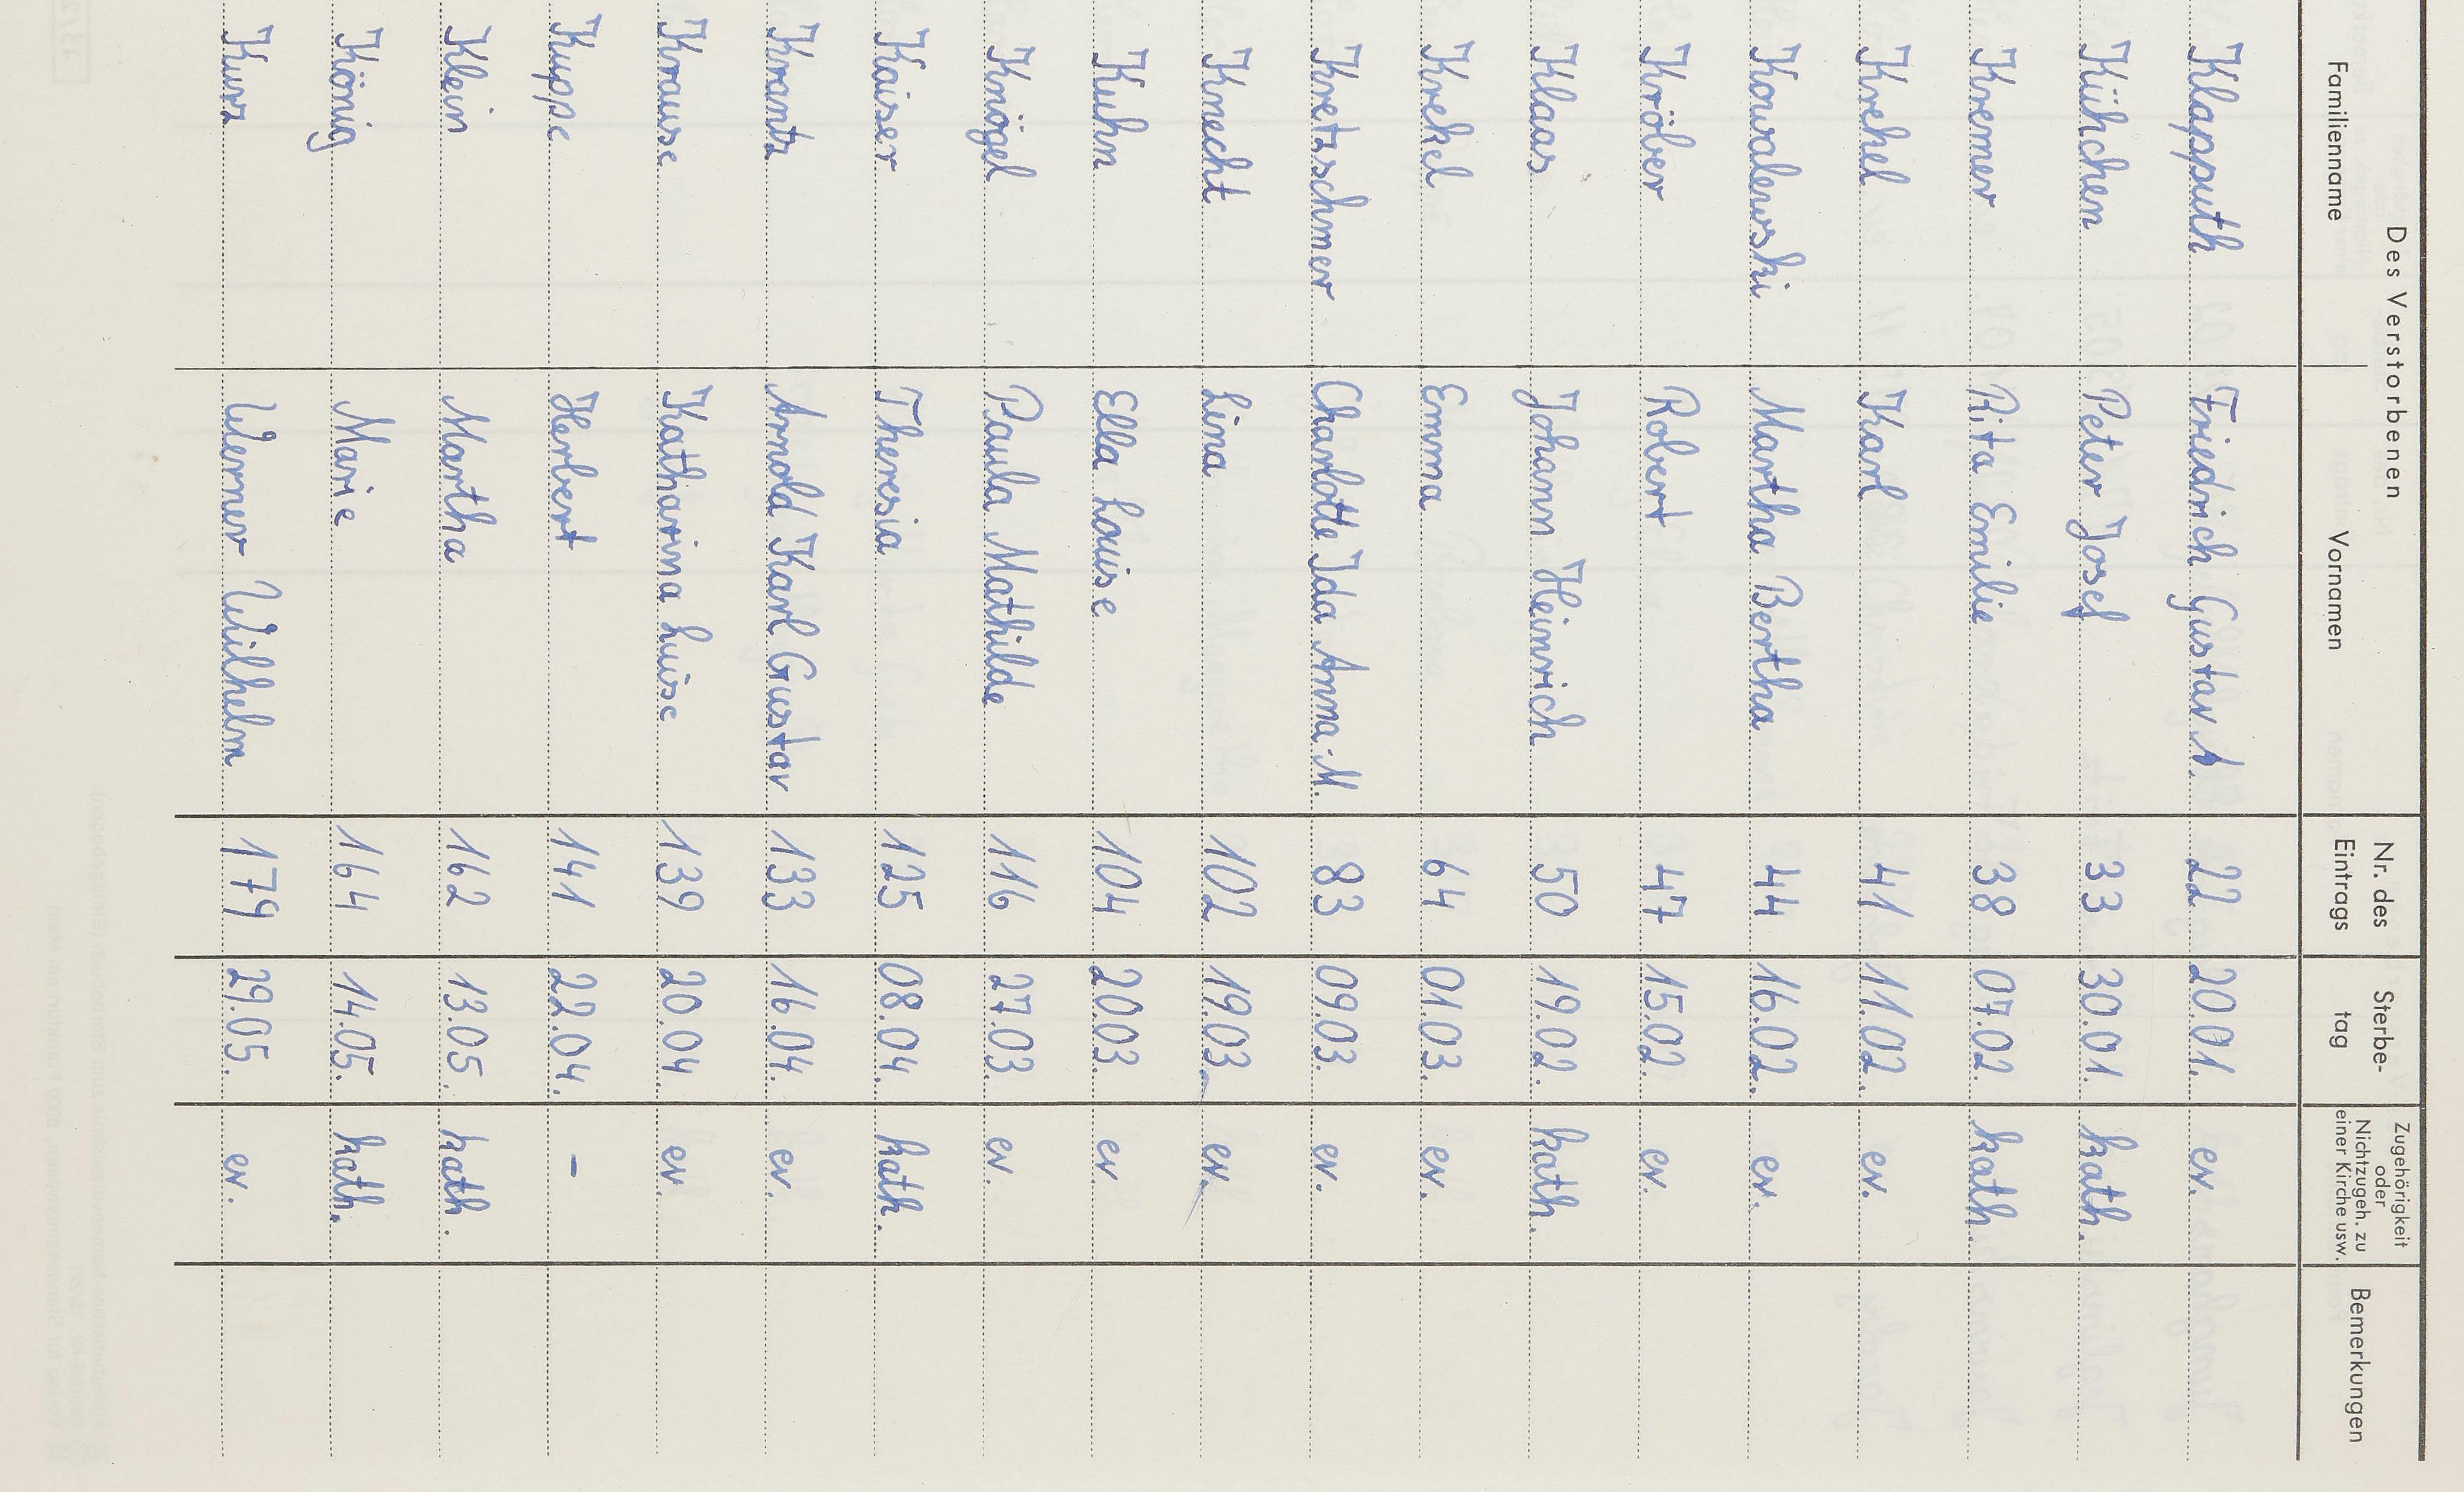 Des Verstorbenen
Familienname Vornamen Nr. des Eintrags Sterbe-tag Zugehörigkeit oder Nichtzugeh. zu einer Kirche usw. Bemerkungen
Klapputh Friedrich Gustav A. 22 20.01. ev.
Kühchen Peter Josef 33 30.01. kath.
Kremer Rita Emilie 38 07.02. kath.
Krehel Karl 41 11.02. ev.
Kowalewski Martha Bertha 44 16.02. ev.
Kröber Robert 47 15.02. ev.
Klaas Johann Heinrich 50 19.02. kath.
Krekel Emma 64 01.03. ev.
Kretzschmer Charlotte Ida Anna-M. 83 09.03. ev.
Knecht Lina 102 19.03. ev.
Kuhn Ella Louise 104 20.03. ev
Knögel Paula Mathilde 116 27.03. ev.
Kaiser Theresia 125 08.04. kath.
Krantz Arnold Karl Gustav 133 16.04. ev.
Krause Katharina Luise 139 20.04. ev.
Kuppe Herbert 141 22.04. -
Klein Martha 162 13.05. kath.
König Marie 164 14.05. kath.
Kurz Werner Wilhelm 179 29.05. ev.